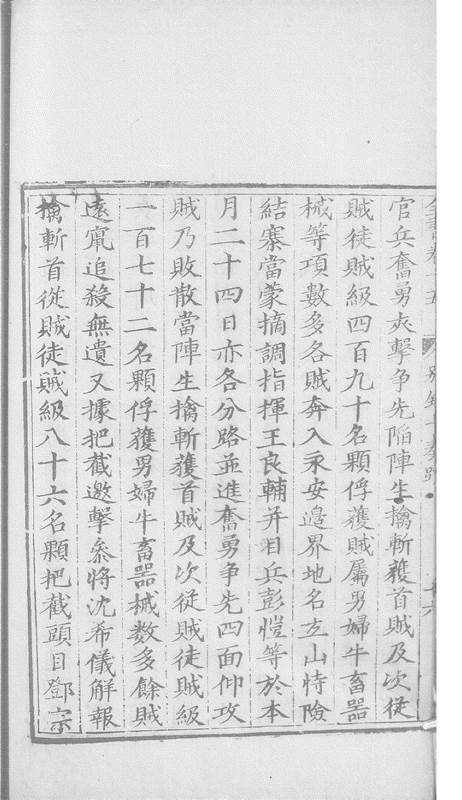 官兵奮勇夾擊争先陷陣生擒斬獲首賊及次從
賊徒賊級四百九十名顆俘獲賊屬男婦牛畜器
械等項數多各賊奔入永安邉界地名立山恃險
結寨當蒙摘調指揮王良輔并目兵彭愷等於本
月二十四日亦各分路並進奮勇争先四面仰攻
賊乃敗散當陣生擒斬獲首賊及次從賊徒賊級
一百七十二名顆俘獲男婦牛畜器械數多餘賊
遠竄追殺無遺又據把截邀擊叅將沈希儀解報
擒斬首從賊徒賊級八十六名顆把截頭目鄧宗